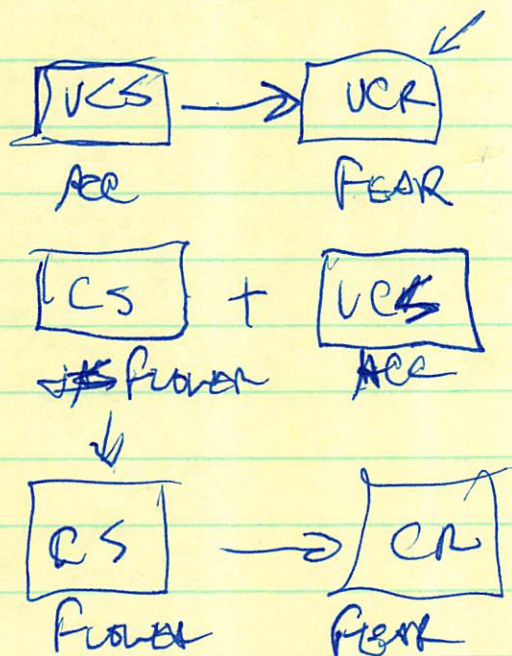 UCS → UCR
ACC FEAR
CS + UCS
FLOWER ACC
CS → CR
FLOWER FEAR